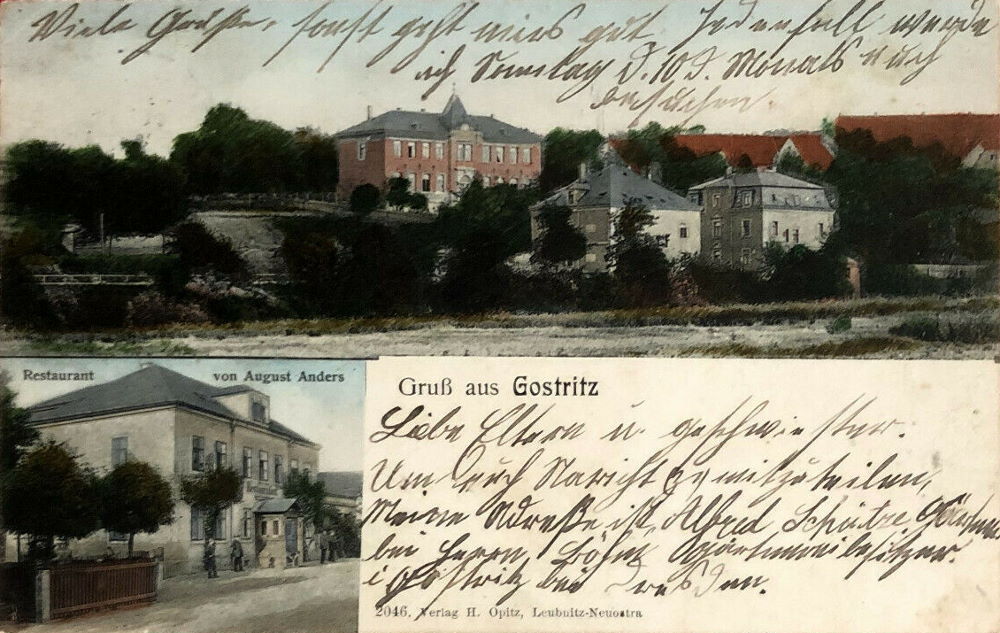 Viele Grüße, sonst geht mirs gut. Jedenfall werde
ich Sonntag d. 10 d. Monats Euch
besuchen.
Restaurant von August Anders
Gruß aus Gostritz
Liebe Eltern u. geschwister.
Um Euch Naricht mitzuteilen,
Meine Adreße ist, Alfred Schütze
bei Herrn, Böhm Gärtnereibesitzer.
i Göstritz bei Dresden.
2046. Verlag H. Opitz, Leubnitz-Neuostra